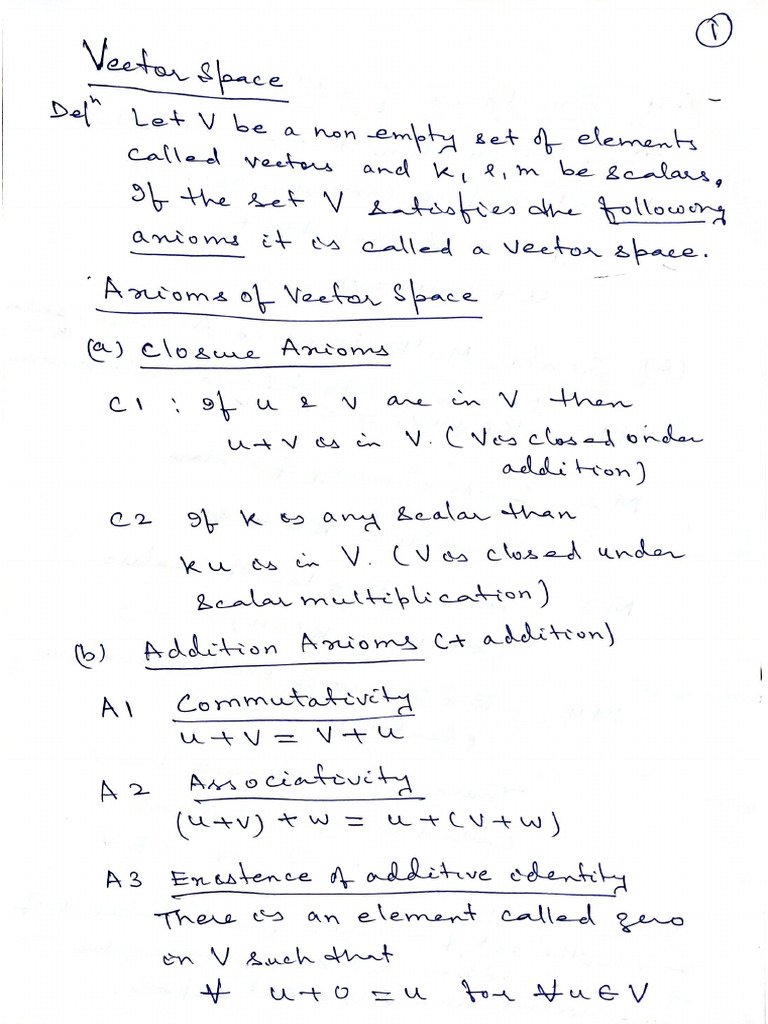 ①
Vector Space
Defⁿ Let V be a non empty set of elements
called vectors and k, l, m be scalars,
If the set V satisfies the following
axioms it is called a vector space.
Axioms of Vector Space
(a) Closure Axioms
C1 : If u & v are in V then
u+v is in V. (V is closed under
addition)
C2 If k is any scalar than
ku is in V. (V is closed under
scalar multiplication)
(b) Addition Axioms (+ addition)
A1 Commutativity
u+v = v+u
A2 Associativity
(u+v) + w = u+(v+w)
A3 Existence of additive identity
There is an element called zero
in V such that
∀ u+0 = u for ∀u∈V